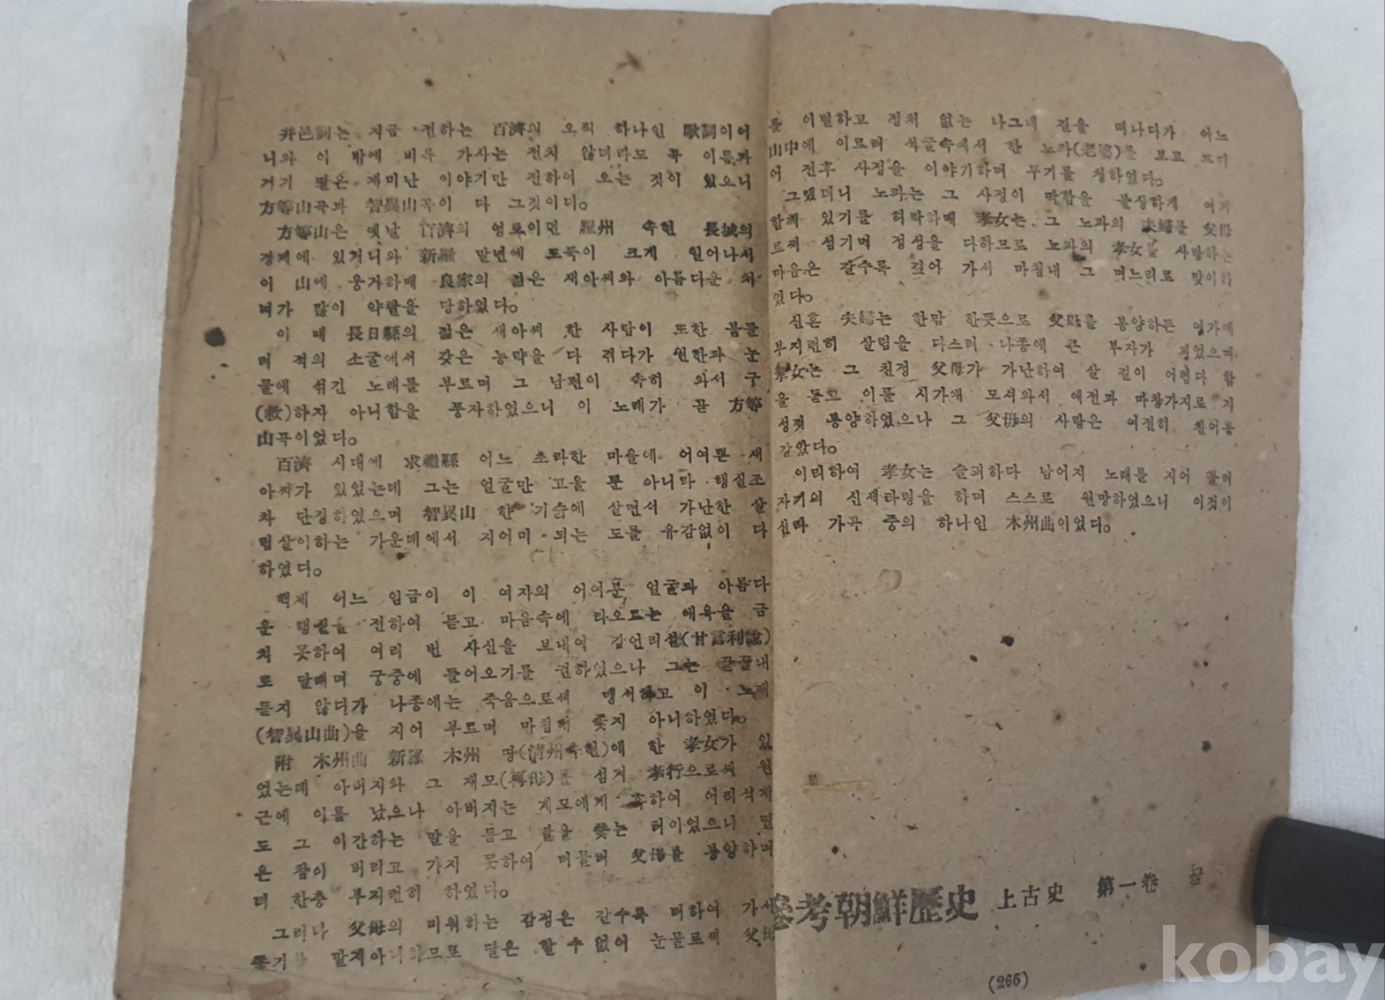 井邑詞는 지금 전하는 百濟의 오직 하나인 歌詞이어
니와 이 밖에 비록 가사는 전치 않더라도 곡 이름과
거기 딸은 재미난 이야기만 전하여 오는 것이 있으니
方等山곡과 智異山곡이 다 그것이다。
方等山은 옛날 百濟의 영토이던 羅州 속현 長城의
경계에 있거니와 新羅 말년에 도둑이 크게 일어나서
이 山에 웅거하매 良家의 젊은 새아씨와 아름다운 처
녀가 많이 약탈을 당하였다。
이 때 長日縣의 젊은 새아씨 한 사람이 또한 붙들
려 적의 소굴에서 갖은 농락을 다 겪다가 원한과 눈
물에 섞긴 노래를 부르며 그 남편이 속히 와서 구
(救)하자 아니함을 풍자하였으니 이 노래가 곧 方等
山곡이었다。
百濟 시대에 求禮縣 어느 초라한 마을에 어여쁜 새
아씨가 있었는데 그는 얼굴만 고울 뿐 아니라 행실조
차 단정하였으며 智異山 한 기슭에 살면서 가난한 살
림살이하는 가운데에서 지어미 되는 도를 유감없이 다
하였다。
백제 어느 임금이 이 여자의 어여쁜 얼굴과 아름다
운 행실을 전하여 듣고 마음속에 타오르는 애욕을 금
치 못하여 여러 번 사신을 보내여 감언리설(甘言利說)
로 달래며 궁중에 들어오기를 권하였으나 그는 끝끝내
듣지 않더가 나종에는 죽음으로써 맹서하고 이 노래
(智異山曲)을 지어 부르며 마침내 좇지 아니하였다。
附 木州曲 新羅 木州 땅(淸州속현)에 한 孝女가 있
었는데 아버지와 그 재모(再母)를 섬겨 孝行으로써 원
근에 이름 났으나 아버지는 계모에게 혹하여 어리석게
도 그 이간하는 말을 듣고 딸을 쫓는 터이었으니 딸
은 참아 버리고 가지 못하여 머물며 父母를 봉양하며
더 한층 부지런히 하였다。
그러나 父母의 미워하는 감정은 갈수록 더하여 가서
쫓기를 말지아니하므로 딸은 할 수 없어 눈물로써 父母
를 이별하고 정처 없는 나그네 길을 떠나다가 어느
山中에 이르러 석굴속에서 한 노파(老婆)를 보고 드디
어 전후 사정을 이야기하며 두기를 청하였다。
그랬더니 노파는 그 사정이 딱함을 불상하게 여겨
함께 있기를 허락하매 孝女는 그 노파의 夫婦를 父母
로써 섬기며 정성을 다하므로 노파의 孝女를 사랑하는
마음은 갈수록 깊어 가서 마침내 그 며느리로 맞이하
였다。
신혼 夫婦는 한맘 한뜻으로 父母를 봉양하는 여가에
부지런히 살림을 다스려 나종에 큰 부자가 되었으며
孝女는 그 친정 父母가 가난하여 살 길이 어렵다 함
을 듣고 이를 시가에 모셔와서 예전과 마찬가지로 지
성껏 봉양하였으나 그 父母의 사랑은 여전히 찬어름
같았다。
이리하여 孝女는 슬퍼하다 남어지 노래를 지어 불러
자기의 신세타령을 하며 스스로 원망하였으니 이것이
신라 가곡 중의 하나인 木州曲이었다。
參考朝鮮歷史 上古史 第一卷 끝
(265)
kobay